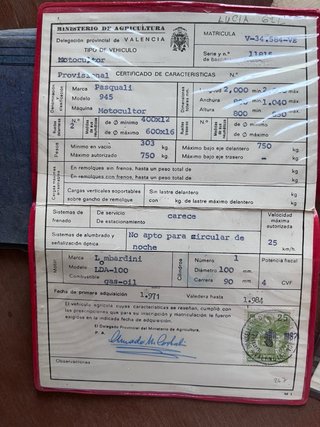 LUCIA
MINISTERIO DE AGRICULTURA
Delegación provincial de VALENCIA
MATRICULA V-34.584-VE
TIPO DE VEHICULO
Motocultor
Serie y n.º
de bastidor
Provisional CERTIFICADO DE CARACTERISTICAS N.º
Marca Pasquali
Modelo 945
Máquina Motocultor
2,000
Anchura 1.040
Altura 800
Ruedas 2/2 de Ø mínimo 400x12
de Ø máximo 600x16
Pesos Mínimo en vacío 303 kg Máximo bajo eje delantero 750 kg
Máximo autorizado 750 kg. Máximo bajo eje trasero - kg
En remolques sin frenos, hasta un peso total de kg
En remolques con frenos, hasta un peso total de kg
Cargas verticales soportables Sin lastre delantero
sobre gancho de remolque con kg. de lastre delantero kg
Sistemas de frenado De servicio carece
De estacionamiento
Velocidad máxima autorizada 25 km/h.
Sistemas de alumbrado y señalización óptica. No apto para circular de noche
Motor Marca Lombardini
Modelo LDA-100
Combustible gas-oil
Cilindros Número 1
Diámetro 100 mm
Carrera 90 mm
Potencia fiscal 4 CVF
Fecha de primera adquisición 1.971 Valedera hasta 1.984
El vehículo agrícola cuyas características se reseñan, cumplió con
las prescripciones que para su inscripción y matriculación le fueron
exigidas en la indicada fecha de adquisición.
El Delegado Provincial del Ministerio de Agricultura,
P. A.
25
Observaciones